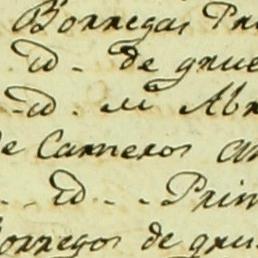 Borregas Pri
Id. de grue
Id. Abr
de Carneros
Id. Prim
Borregos de grue